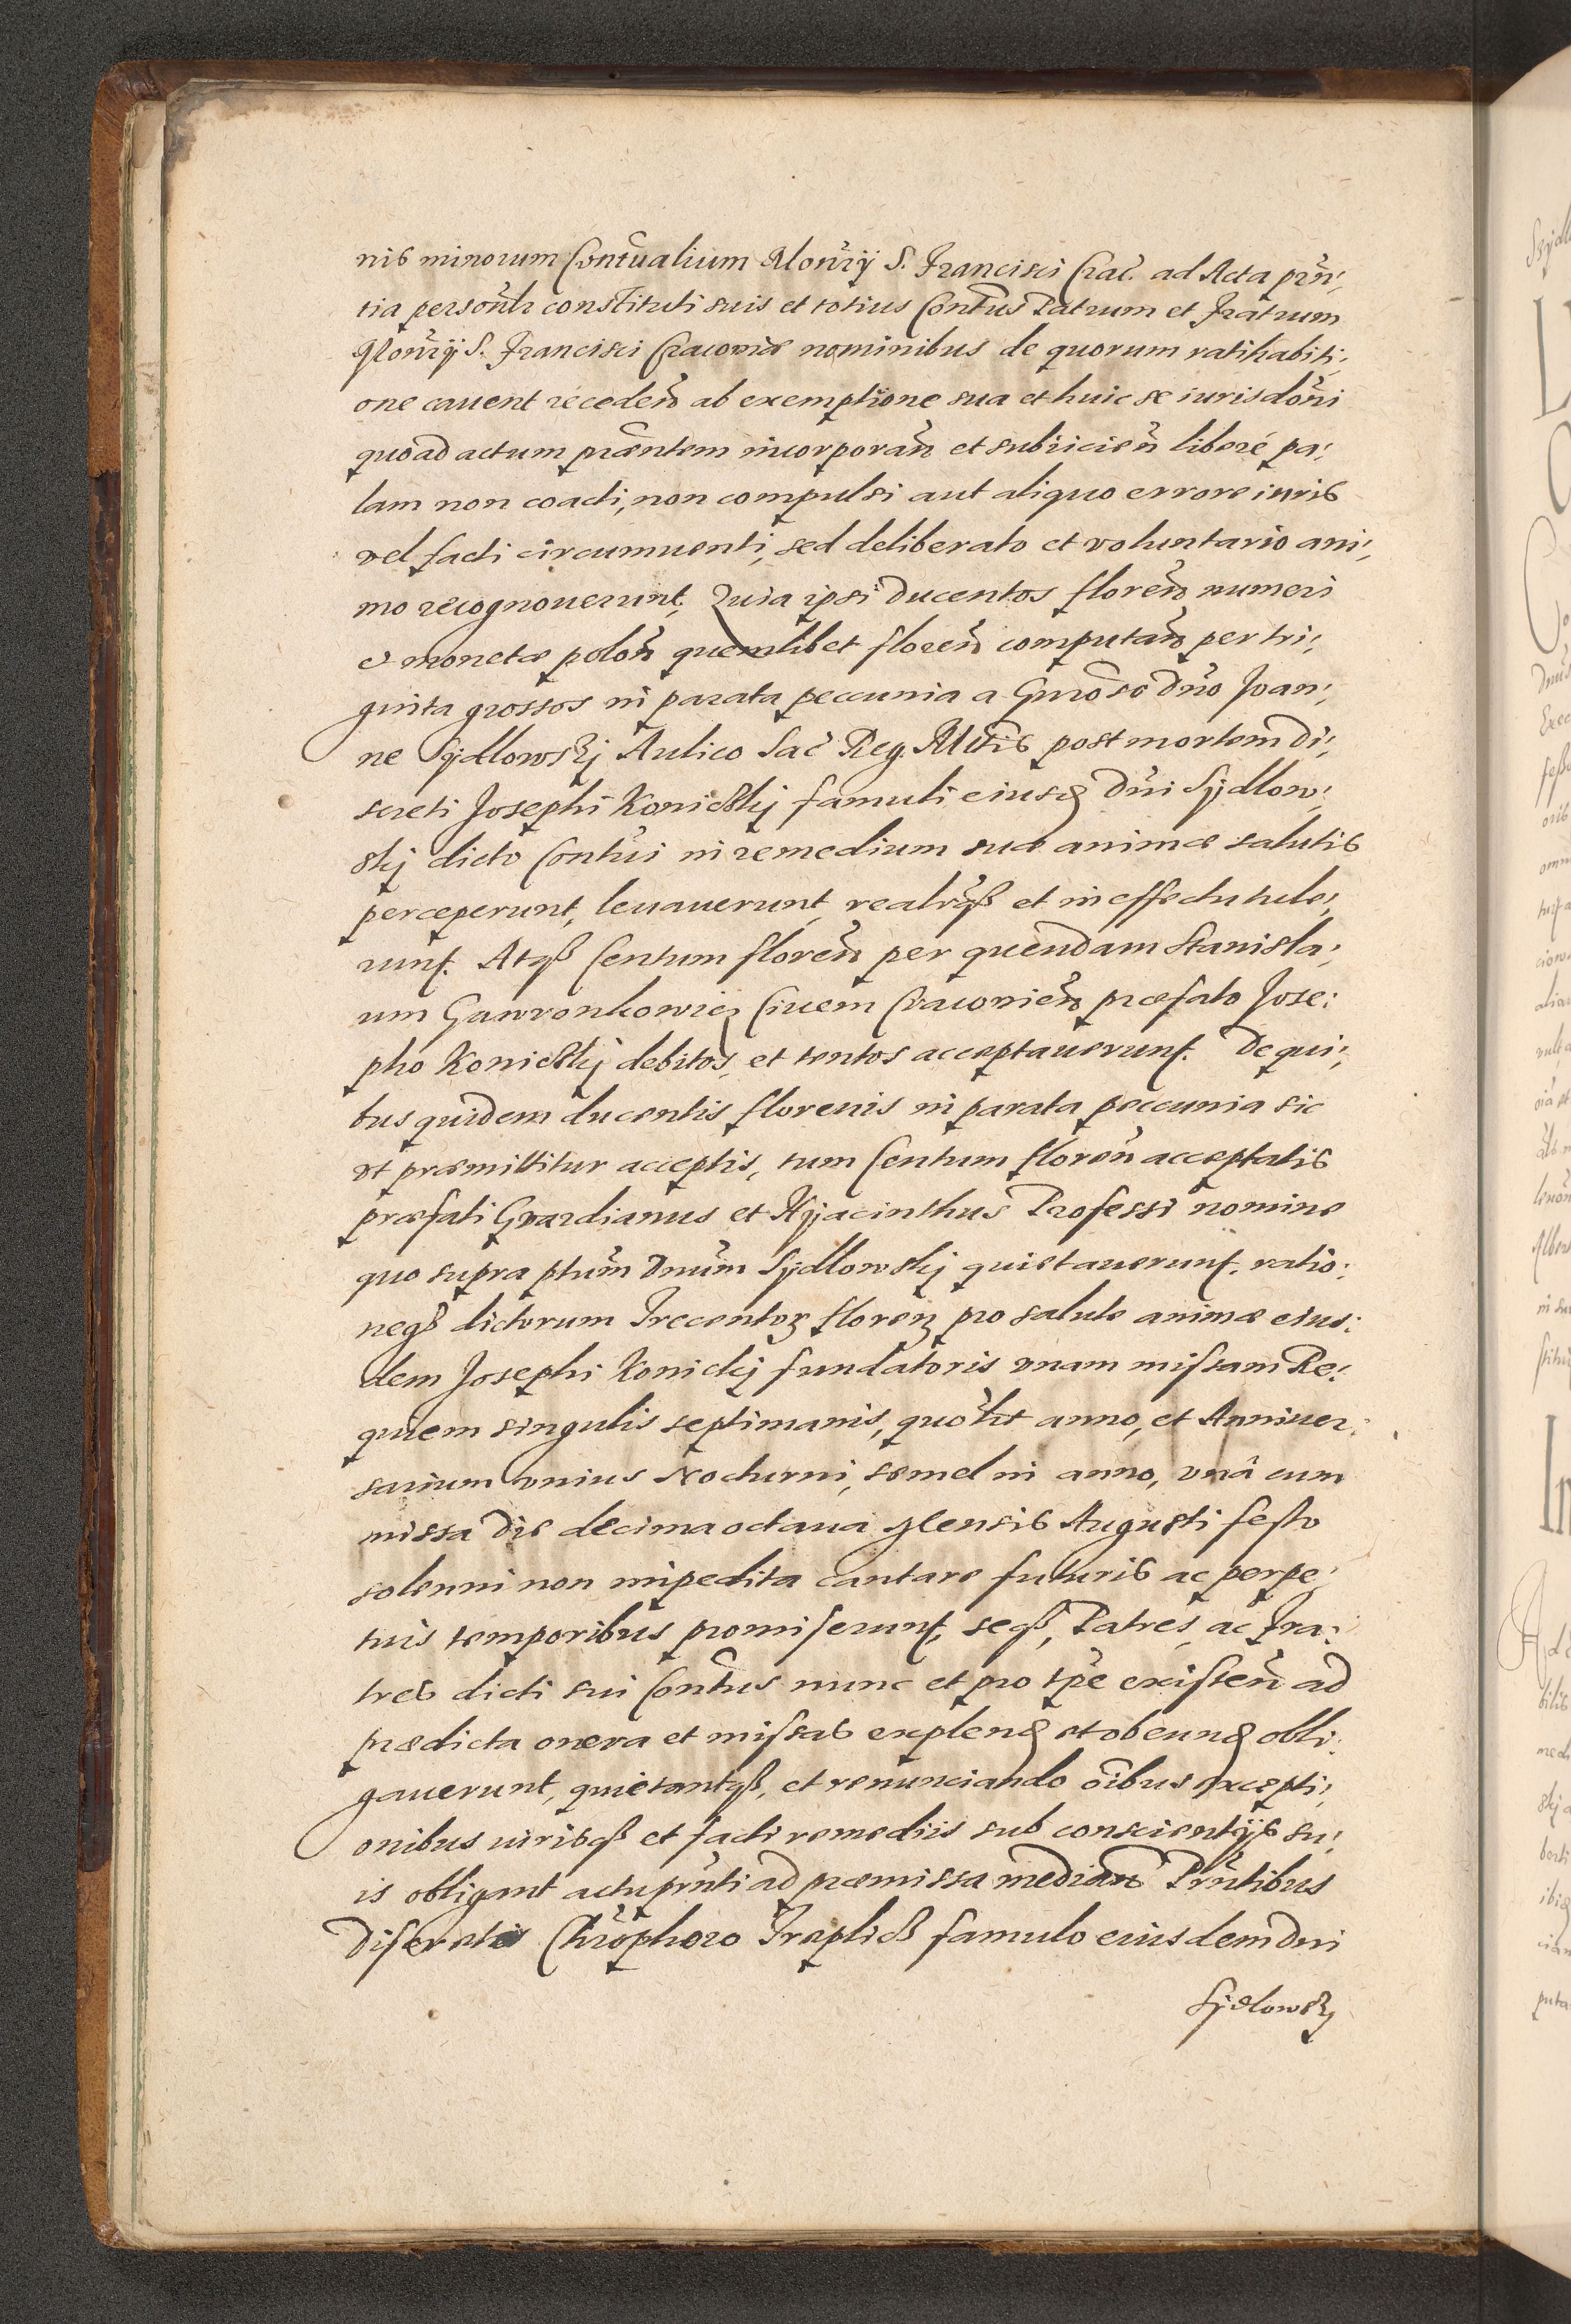 nis minorum Contualium Monrÿ S. Francisci Crac. ad Acta prn¡,
tia personlr constituti suis et totius Contus Patrum et Fratrum
Monrÿ S. Francisci Cracoviæ nominibus de quorum ratihabiti¡,
one cauent receden ab exemptione sua et huic se iurisdoni
quoad actum præntem incorporan et subiicien liberé pa¡
lam non coacti, non compulsi aut aliquo errore iuris
vel facti circumuenti, sed deliberato et voluntario ani¡,
mo recognouerunt. Quia ipsi Ducentos floren numeri
et monetæ polon quemlibet floren computan per tri¡,
ginta grossos in parata peccunia a Gnroso Dno Joan¡,
ne Sydlowskj Aulico Sac Reg. Mttis post mortem di¡,
screti Josephi Konickj famuli eiusd Dni Sydlow¡,
skj dicto Contui in remedium suæ animæ salutis
perceperunt, leuauerunt, realrqß et in effectu tule¡,
runt. Atqß Centum floren per quendam Stanisla¡,
um Gawronkowicz Ciuem Cracovien præfato Jose:
pho Konickj debitos, et tentos acceptauerunt. De qui¡,
bus quidem ducentis florenis in parata peccunia sic
vt præmittitur acceptis, tum Centum floren acceptatis
præfati Guardianus et Hyacinthus Professi nomine
quo supra ptum Dnum Sydlowskj quietauerunt. ratio:
neqß dictorum Trecentoꝝ florenꝝ pro salute animæ eius:
dem Josephi Konickj fundatoris vnam missam Re¡
quiem singulis septimanis, quolibt anno, et Anniuer:
sarium vnius Nocturni, semel in anno, vnà cum
missa Die decima octaua Mensis Augusti festo
solenni non impedita cantare futuris ac perpe¡
tuis temporibus promiserunt, seqß, Patres, ac Fra:
tres dicti sui Contus nunc et pro tpe existen ad
prædicta onera et missas explend et obeund obli:
gauerunt, quietantqß, et renunciando oibus excepti¡,
onibus iurisqß et facti remediis sub conscientÿs su¡
is obligant actu prnti ad præmissa median Prntibus
Discretis Chrophoro Treplicß famulo eiusdem Dni
Sydlowskj